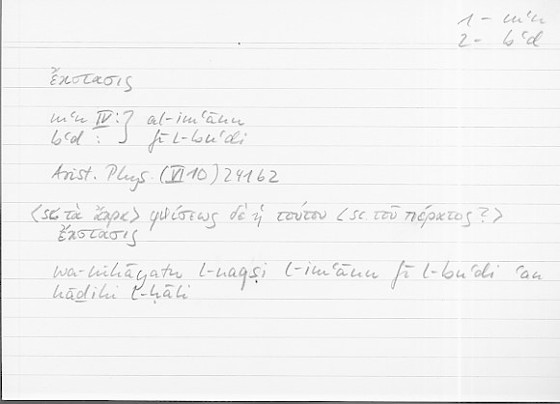 1 - mʿn
2 - bʿd
ἔκστασις
mʿn IV : } al-imʿānu
bʿd : } fī l-buʿdi
Arist. Phys. (VI 10) 241b2
<sc. τὰ ἄκρα> φθίσεως δὲ ἡ τούτου <sc. τοῦ πέρατος?>
ἔκστασις
wa-nihāyatu l-naqṣi l-imʿānu fī l-buʿdi ʿan
hāḏihi l-ḥāli